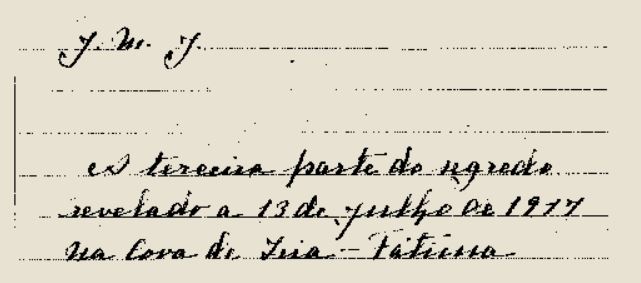 J. M. J.
A terceira parte do segredo
revelado a 13 de julho de 1917
na Cova de Iria – Fátima